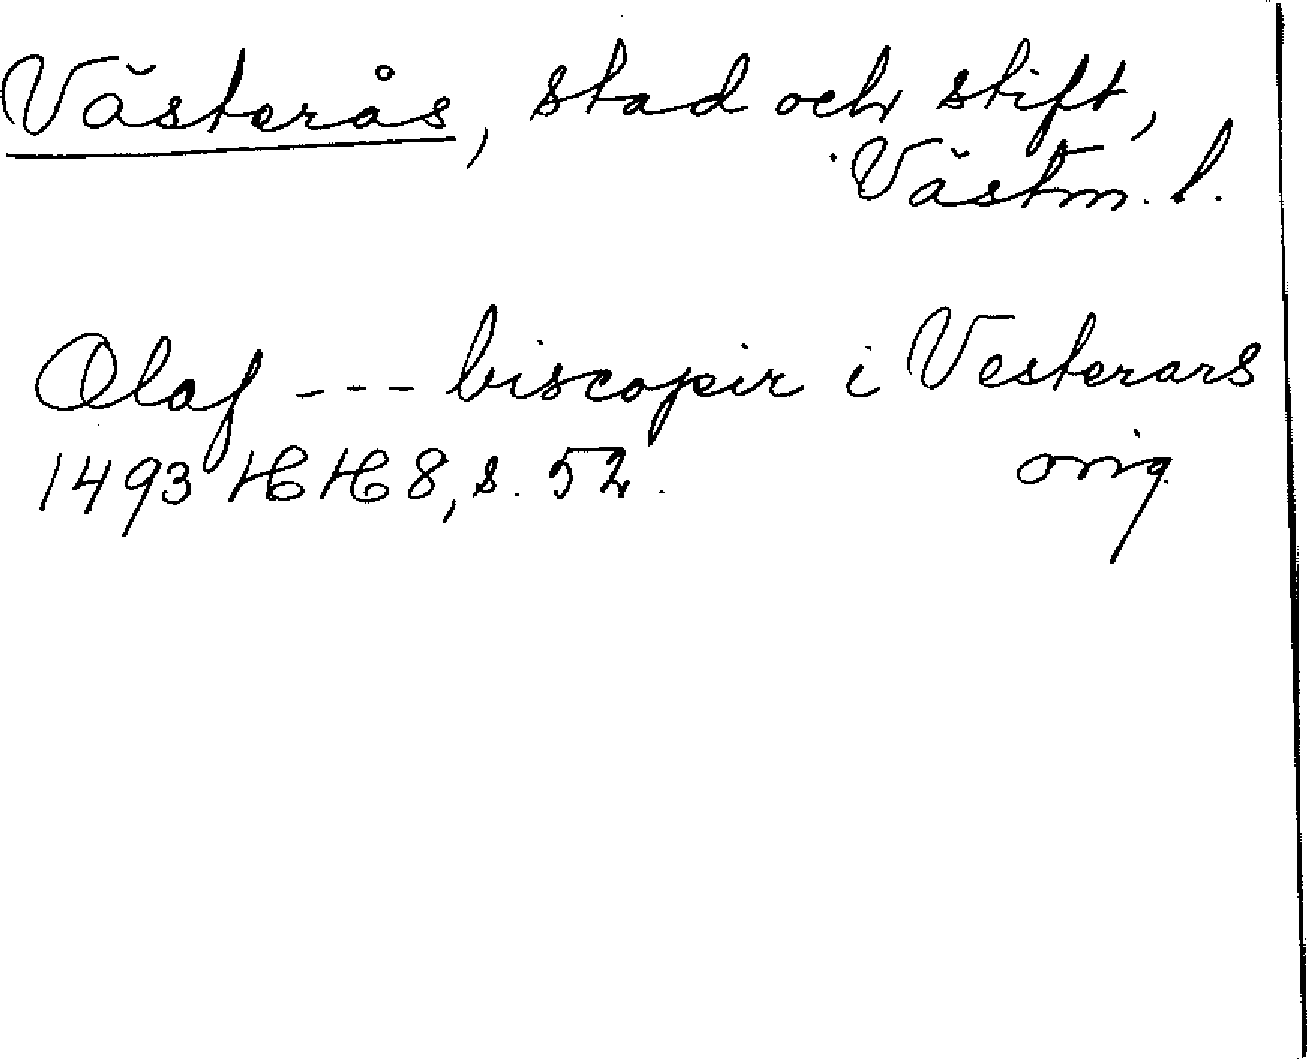 Västerås, stad och stift,
Västm. l.
Olaf --- biscopir i Vesterars
1493 HH 8, s. 52. orig.